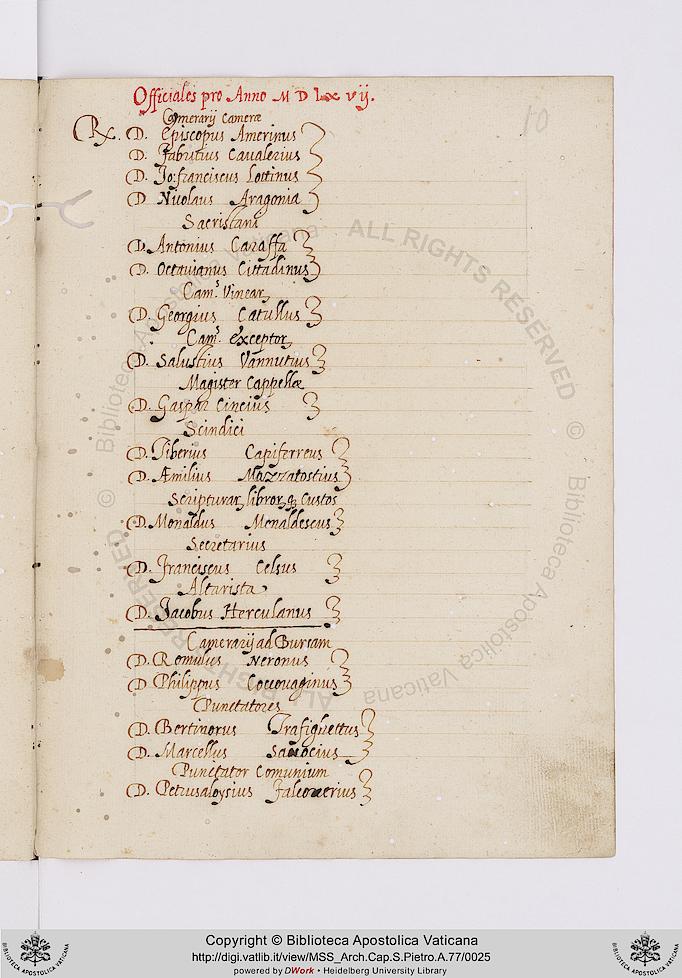 Officiales pro Anno M D lx vij.
10
Camerarij Cameræ
Rx. D. Episcopus Amerinus
D. Fabritius Cavalerius
D. Jo: franciscus Lottinus
D. Nicolaus Aragonia
Sacristani
D. Antonius Caraffa
D. Octavianus Cittadinus
Cam. Vinear
D. Georgius Catullus
Cam. exceptor
D. Salustius Vannutius
Magister Cappellæ
D. Gaspar Cincius
Scindici
D. Tiberius Capiferreus
D. Æmilius Mazzatostius
Scripturar, libror, q; Custos
D. Monaldus Monaldescus
Secretarius
D. Franciscus Celsus
Altarista
D. Jacobus Herculanus
Camerarij ad Bursam
D. Romulus Neronus
D. Philippus Coccovaginus
Punctatores
D. Bertinorus Trafighettus
D. Marcellus
Punctator Comunium
D. Petrusaloysius Falconerius
© Biblioteca Apostolica Vaticana ALL RIGHTS RESERVED © Biblioteca Apostolica Vaticana ALL RIGHTS RESERVED
Copyright © Biblioteca Apostolica Vaticana
http://digi.vatlib.it/view/MSS_Arch.Cap.S.Pietro.A.77/0025
powered by DWork • Heidelberg University Library
BIBLIOTECA APOSTOLICA VATICANA
BIBLIOTECA APOSTOLICA VATICANA